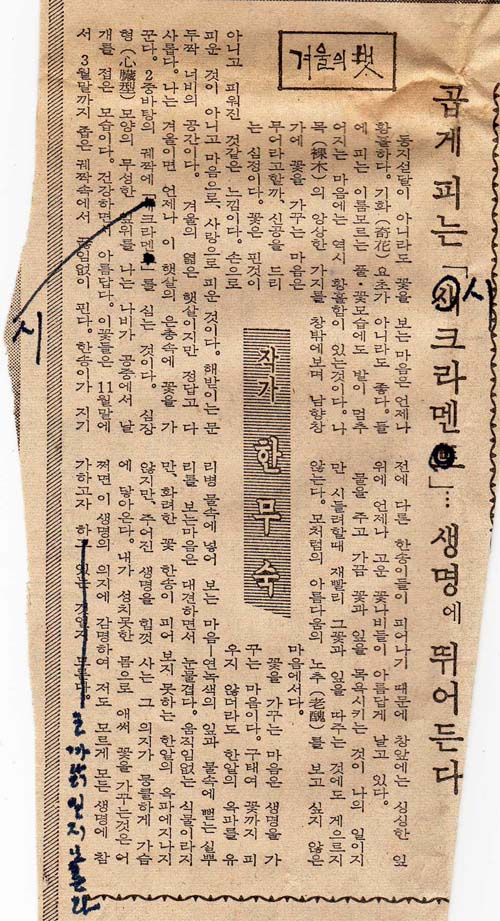 곱게 피는 「시크라멘」… 생명에 뛰어든다
시
겨울의
작가 한무숙
동지섣달이 아니라도 꽃을 보는 마음은 언제나
황홀하다. 기화(奇花) 요초가 아니라도 좋다. 들
에 피는 이름모르는 풀·꽃모습에도 발이 멈추
어지는 마음에는 역시 황홀함이 있는것이다. 나
목(裸木)의 앙상한 가지를 창밖에보며 남향창
가에 꽃을 가꾸는 마음은
무어라고할까, 신공을 드리
는 심정이다. 꽃은 핀것이
아니고 피워진 것같은 느낌이다. 손으로
피운 것이 아니고 마음으로, 사랑으로 피운 것이다. 해받이는 문
두짝 너비의 공간이다. 겨울의 엷은 햇살이지만 정답고 다
사롭다. 나는 겨울이면 언제나 이 햇살의 은총속에 꽃을 가
꾼다. 2중바탕의 궤짝에 「크라멘」를 심는 것이다. 심장
시
형(心臟型) 모양의 무성한 잎위를 나는 나비가 공중에서 날
개를 접은 모습이다. 건강하면서 아름답다. 이꽃들은 11월말에
서 3월말까지 좁은 궤짝속에서 끊임없이 핀다. 한송이가 지기
전에 다른 한송이들이 피어나기 때문에 창앞에는 싱싱한 잎
위에 언제나 고운 꽃나비들이 아름답게 날고 있다.
물을 주고 가끔 꽃과 잎을 목욕시키는 것이 나의 일이지
만 시들려할때 재빨리 그꽃과 잎을 따주는 것에도 게으르지
않는다. 모처럼의 아름다움의 노추(老醜)를 보고 싶지 않은
마음에서다.
꽃을 가꾸는 마음은 생명을 가
꾸는 마음이다. 구태여 꽃까지 피
우지 않더라도 한알의 옥파를 유
리병 물속에 넣어 보는 마음—연녹색의 잎과 물속에 뻗는 실뿌
리를 보는마음은 대견하면서 눈물겹다. 움직임없는 식물이라지
만, 화려한 꽃 한송이 피어 보지 못하는 한알의 옥파에지나지
않지만, 주어진 생명을 힘껏 사는 그 의지가 뭉클하게 가슴
에 닿아온다. 내가 성치못한 몸으로 애써 꽃을 가꾸는것은 어
쩌면 이 생명의 의지에 감명하여 저도 모르게 모든 생명에 참
가하고자 하고 있는 것인지 모른다.
까닭일지 모른다